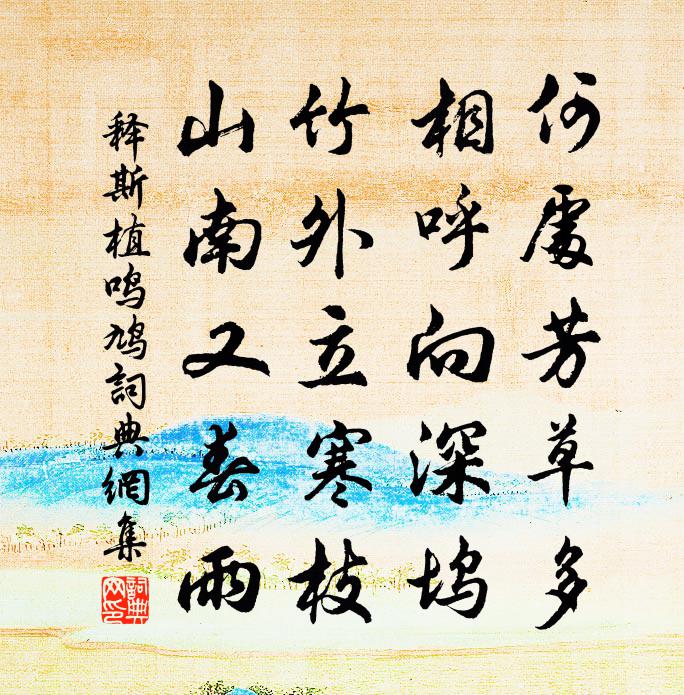 何處芳草多
相呼向深塢
竹外立寒枝
山南又春雨
释斯植鸣鳩詞典網集
詞典
网印